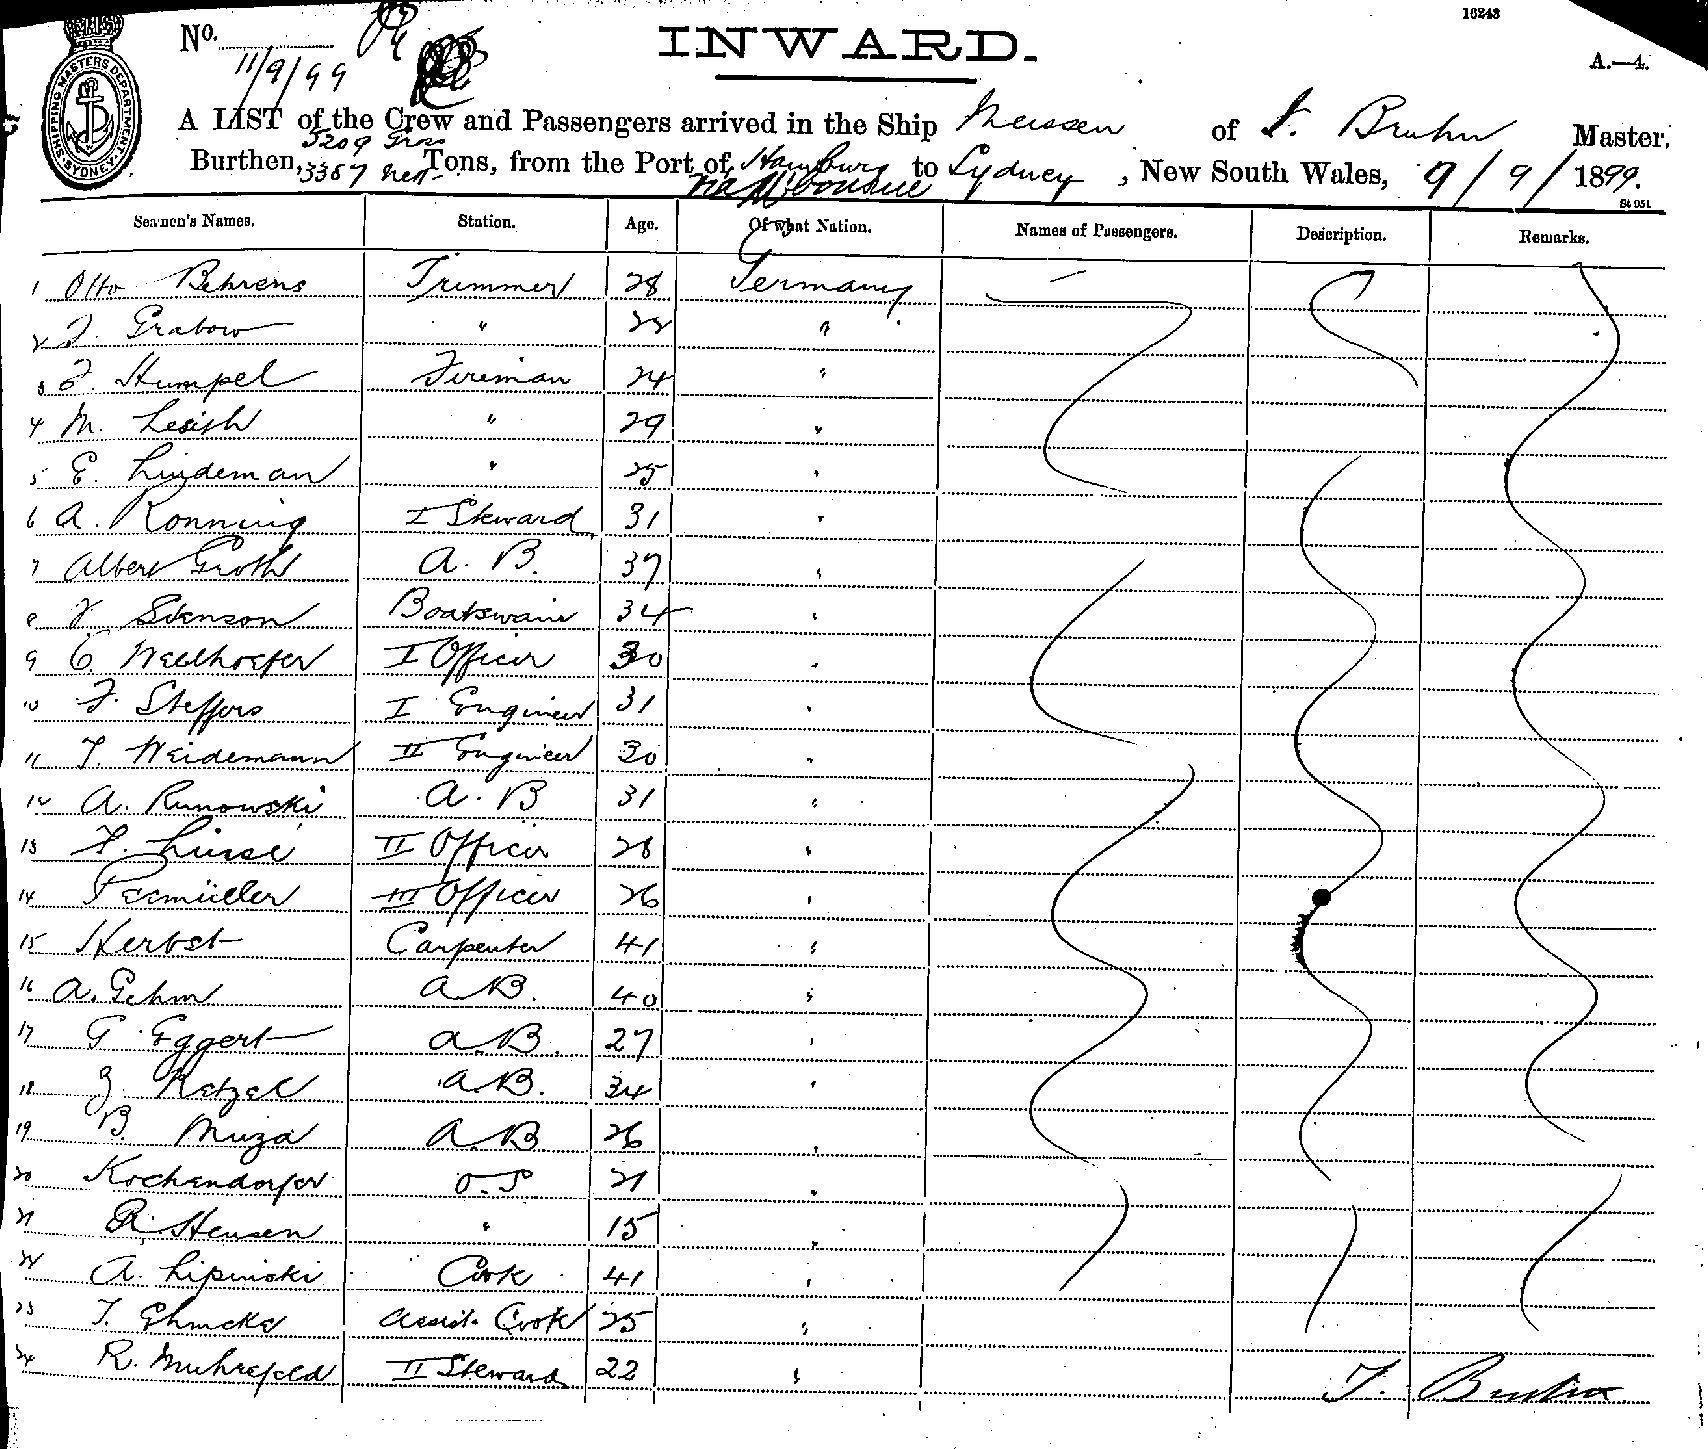 16243
No.
11/9/99
INWARD.
A.—4.
SHIPPING MASTERS DEPARTMENT SYDNEY
A LIST of the Crew and Passengers arrived in the Ship Meissen of Bruhn Master,
5209 Gross
Burthen, 3387 net Tons, from the Port of Hamburg to Sydney, New South Wales, 9/9/1899.
via Melbourne
St 951
Seamen's Names. Station. Age. Of what Nation. Names of Passengers. Description. Remarks.
1 Otto Behrens Trimmer 28 Germany —
2 F. Grabow " 22 "
3 F. Humpel Fireman 24 "
4 M. Lesish " 29 "
5 E. Lindeman " 25 "
6 A. Konning I Steward 31 "
7 Albert Groth A. B. 37 "
8 Svenson Boatswain 34 "
9 C. Wellhoefer I Officer 30 "
10 F. Steffers I Engineer 31 "
11 T. Weidemann II Engineer 30 "
12 A. Runowski A. B 31 "
13 II Officer 28 "
14 III Officer 26 "
15 Herbst Carpenter 41 "
16 A. Gehm A.B. 40 "
17 G. Eggert A.B. 27 "
18 Ketzel A.B. 34 "
19 B. Muza A.B 26 "
20 Kochendorfer O.S 21 "
21 R. Hensen " 15 "
22 A. Lipinski Cook 41 "
23 T. Ehmcke Assist. Cook 25 "
24 R. Muhrefeld II Steward 22 "
Bruhn